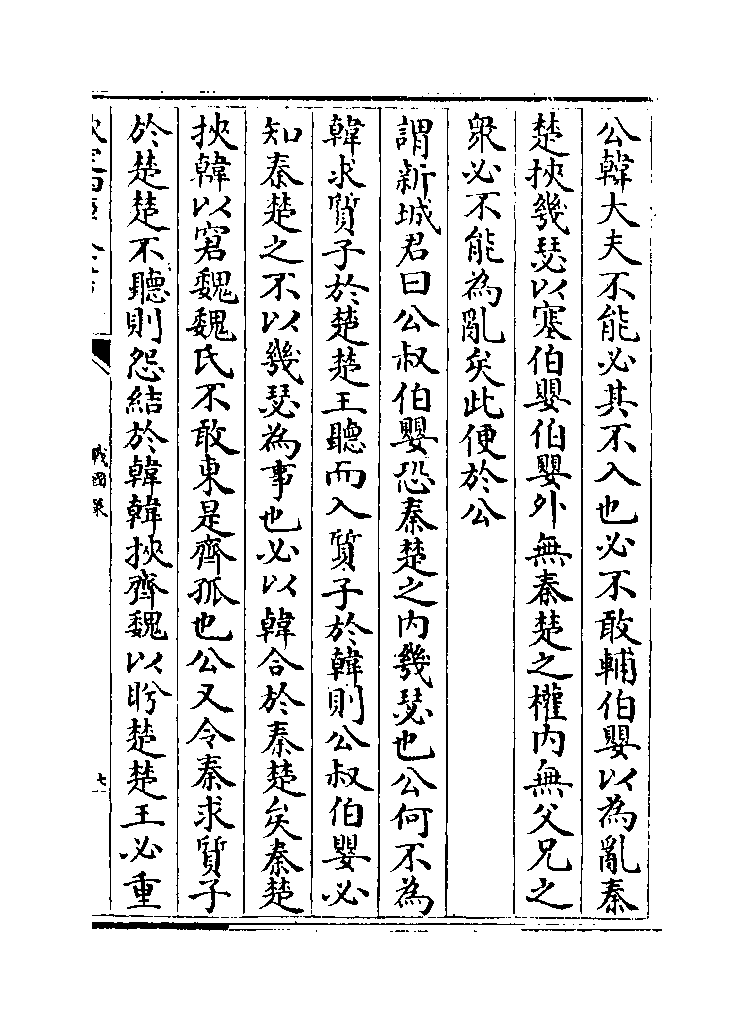 公韓大夫不能必其不入也必不敢輔伯嬰以為亂秦
楚挾幾瑟以塞伯嬰伯嬰外無秦楚之權内無父兄之
衆必不能為亂矣此便於公
謂新城君曰公叔伯嬰恐秦楚之内幾瑟也公何不為
韓求質子於楚楚王聽而入質子於韓則公叔伯嬰必
知秦楚之不以幾瑟為事也必以韓合於秦楚矣秦楚
挾韓以窘魏魏氏不敢東是齊孤也公又令秦求質子
於楚楚不聽則怨結於韓韓挾齊魏以盻楚楚王必重
戰國策